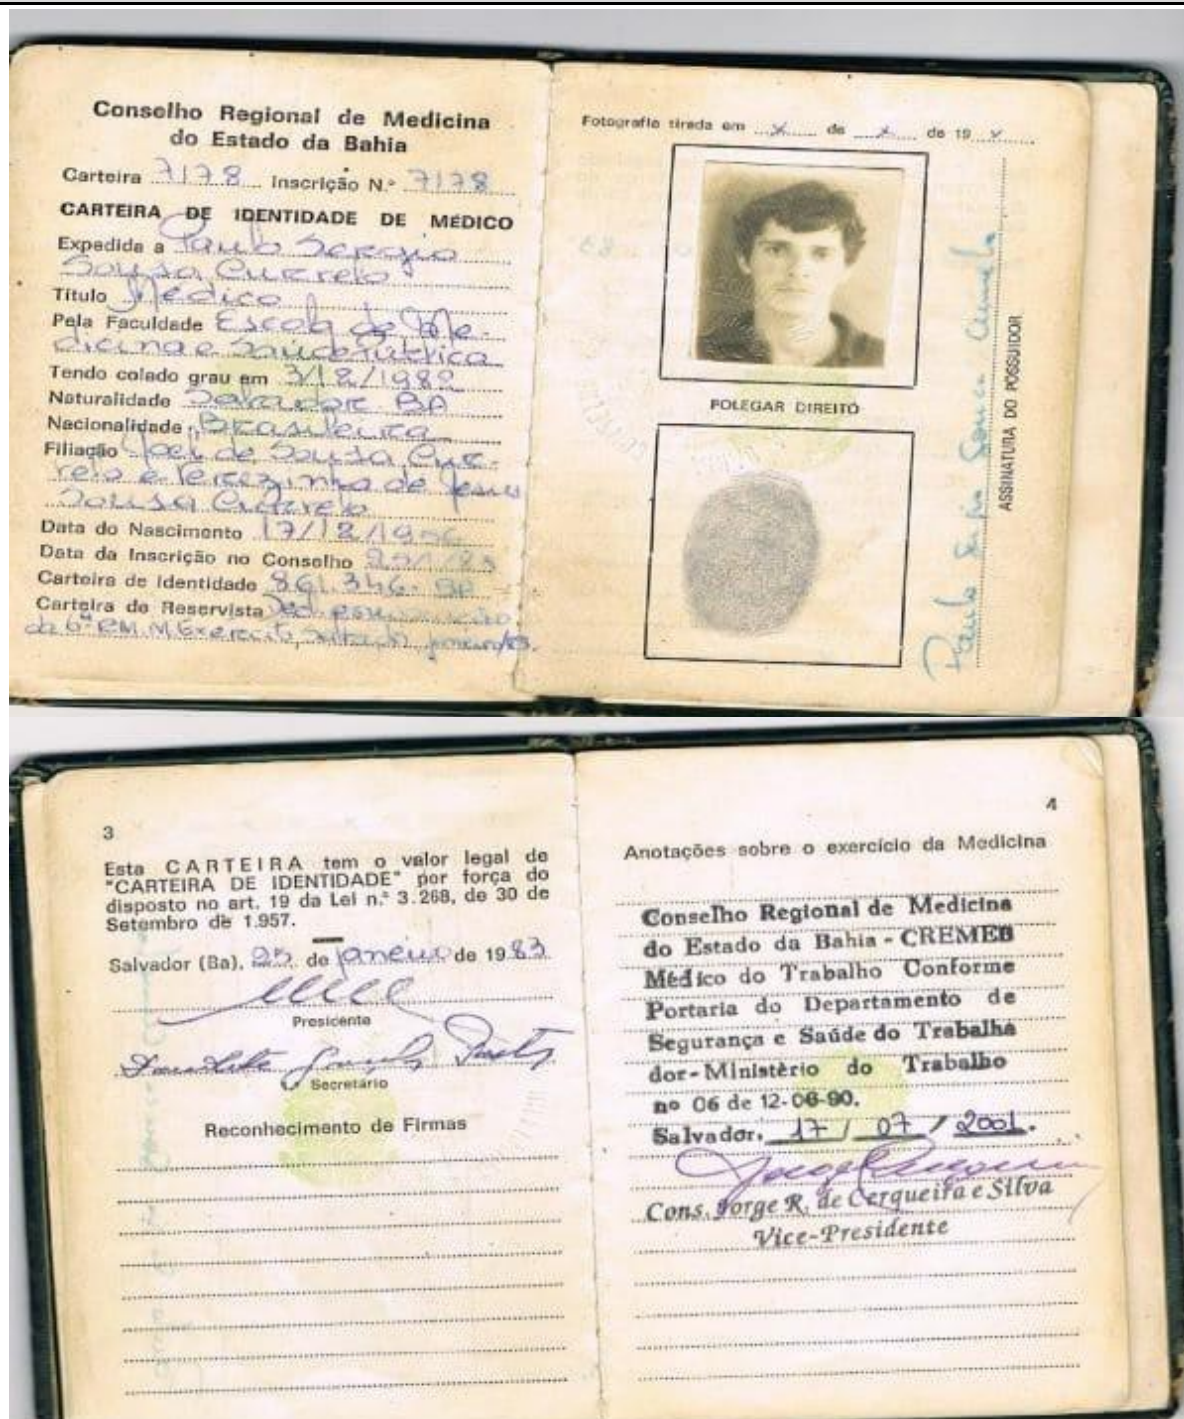 Conselho Regional de Medicina
do Estado da Bahia
Carteira 7178 Inscrição N.º 7178
CARTEIRA DE IDENTIDADE DE MÉDICO
Expedida a Paulo Sergio
Sousa Curvelo
Título Médico
Pela Faculdade Escola de Me-
dicina e Saúde Publica
Tendo colado grau em 3/12/1982
Naturalidade Salvador BA
Nacionalidade Brasileira
Filiação Joel de Sousa Cur-
velo e Terezinha de Jesus
Sousa Curvelo
Data do Nascimento 17/12/1956
Data da Inscrição no Conselho
Carteira de Identidade 861.346. BA
Carteira de Reservista
da 6ª RM. M. Exercito
Fotografia tirada em x de x de 19 x
POLEGAR DIREITO
ASSINATURA DO POSSUIDOR
Paulo Sergio Sousa Curvelo
3
Esta CARTEIRA tem o valor legal de
"CARTEIRA DE IDENTIDADE" por força do
disposto no art. 19 da Lei n.º 3.268, de 30 de
Setembro de 1.957.
Salvador (Ba), 25 de janeiro de 19 83
Presidente
Secretário
Reconhecimento de Firmas
4
Anotações sobre o exercício da Medicina
Conselho Regional de Medicina
do Estado da Bahia - CREMEB
Médico do Trabalho Conforme
Portaria do Departamento de
Segurança e Saúde do Trabalha
dor - Ministério do Trabalho
nº 06 de 12-06-90.
Salvador, 17 / 07 / 2001.
Cons. Jorge R. de Cerqueira e Silva
Vice-Presidente